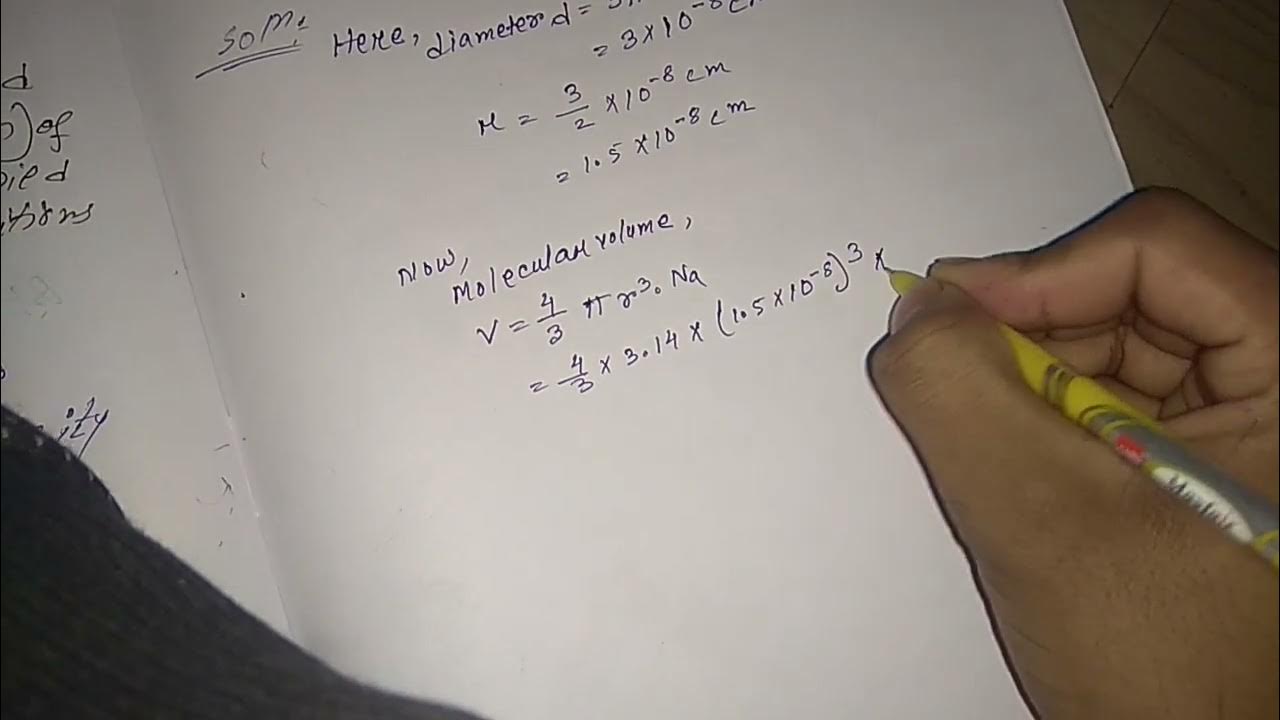 d
of
pied
Soln:
Here, diameter d = 3
= 3×10⁻⁸ cm
r = 3/2 ×10⁻⁸ cm
= 1.5 ×10⁻⁸ cm
Now,
Molecular volume,
V = 4/3 π r³. Na
= 4/3 × 3.14 × (1.5 ×10⁻⁸)³ ×
ity